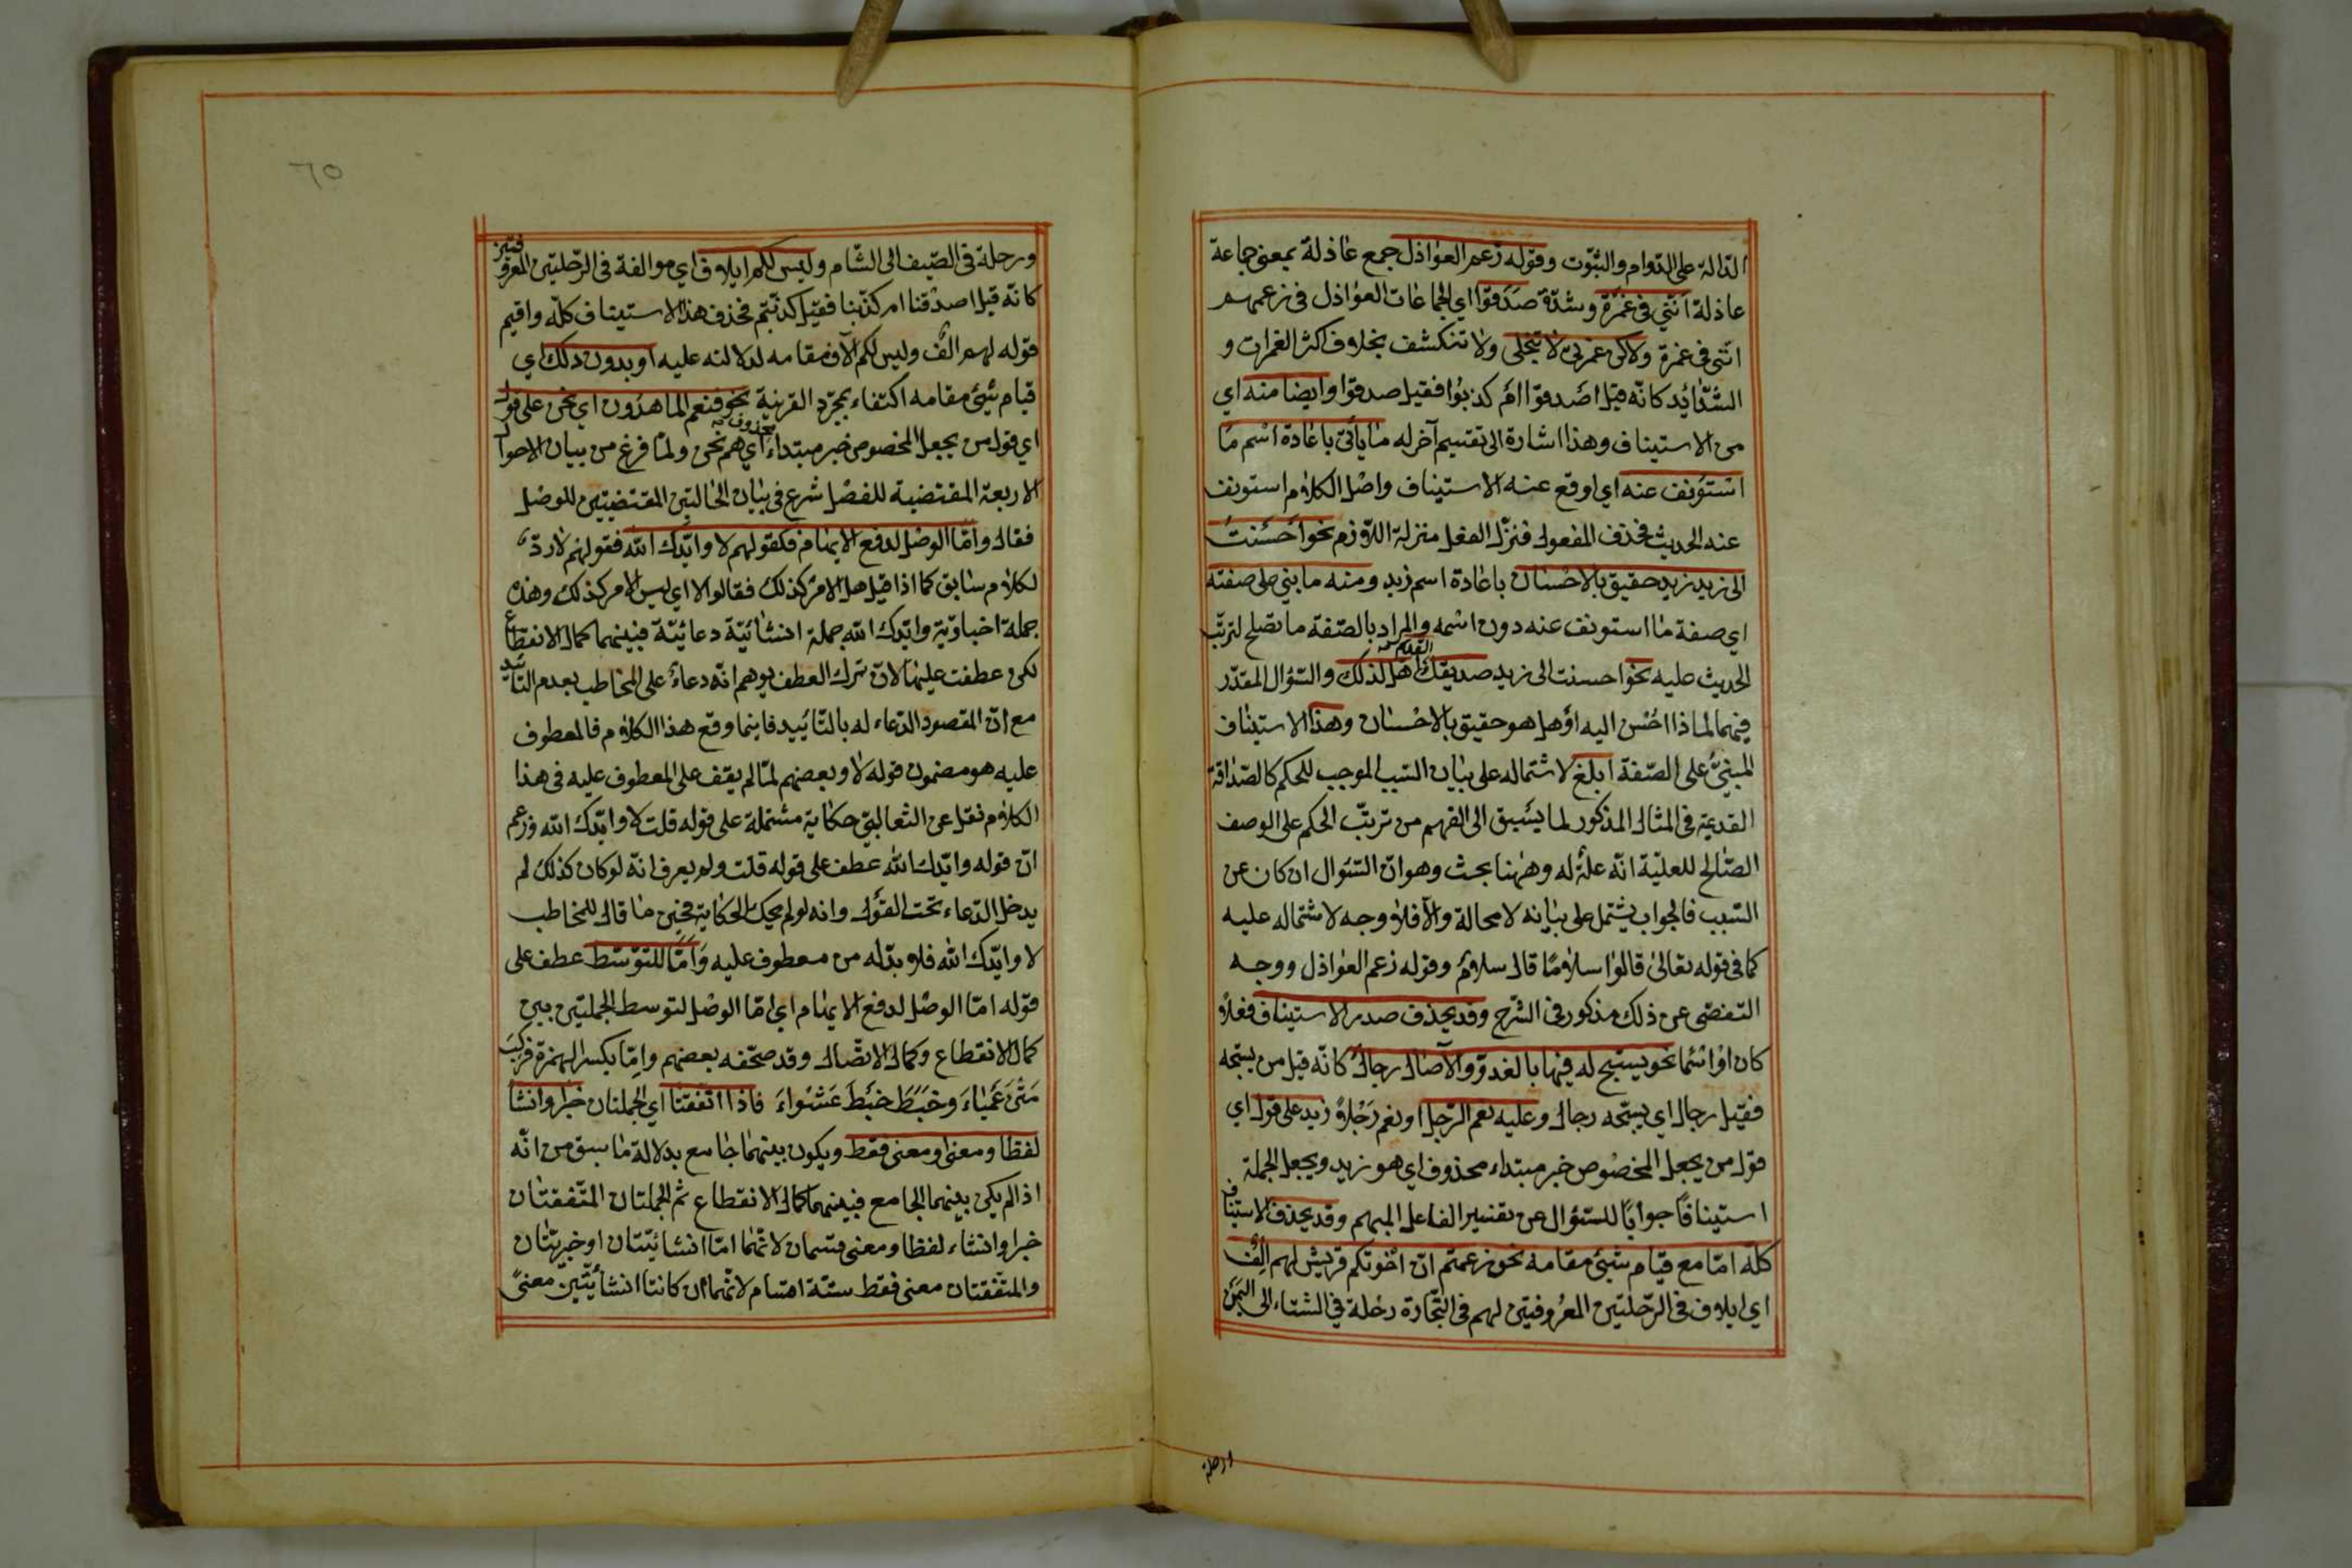 الدالة على الدوام والثبوت وقوله زعم العواذل جمع عاذلة بمعنى جماعة
عاذلة انني في غمرة وشدة صدقوا اي الجماعات العواذل في زعمهم
انني في غمرة ولاكن غمرتي لا تنجلي ولا تنكشف بخلاف اكثر الغمرات و
الشدائد كانه قيل اصدقوا ام كذبوا فقيل صدقوا وايضا منه اي
من الاستيناف وهذا اشارة الى تقسيم آخر له ما يأتي باعادة اسم ما
استؤنف عنه اي اوقع عنه الاستيناف واصل الكلام استونف
عنه الحديث فحذف المفعول فنزل الفعل منزلة اللازم نحو احسنت
الى زيد زيد حقيق بالاحسان باعادة اسم زيد ومنه ما يبني على صفته
اي صفة ما استونف عنه دون اسمه والمراد بالصفة ما تصلح لترتب
الحديث عليه نحو احسنت الى زيد صديقك القديم اهل لذلك والسؤال المقدر
فيهما لماذا احسن اليه او هل هو حقيق بالاحسان وهذا الاستيناف
المبني على الصفة ابلغ لاشتماله على بيان السبب الموجب للحكم كالصداقة
القديمة في المثال المذكور لما يسبق الى الفهم من ترتب الحكم على الوصف
الصالح للعلية انه علة له وههنا بحث وهو ان السؤال ان كان عن
السبب فالجواب يشتمل على بيانه لا محالة والا فلا وجه لاشتماله عليه
كما في قوله تعالى قالوا سلاما قال سلام وقوله زعم العواذل ووجه
التفصي عن ذلك مذكور في الشرح وقد يحذف صدر الاستيناف فعلا
كان او اسما نحو يسبح له فيها بالغدو والآصال رجال كانه قيل من يسبحه
فقيل رجال اي يسبحه رجال وعليه نعم الرجل او نعم رجلا زيد على قول اي
قول من يجعل المخصوص خبر مبتداء محذوف اي هو زيد ويجعل الجملة
استينافا جوابا للسؤال عن تفسير الفاعل المبهم وقد يحذف الاستيناف
كله اما مع قيام شيئ مقامه نحو زعمتم ان اخوتكم قريش لهم الف
اي ايلاف في الرحلتين المعروفتين لهم في التجارة رحلة في الشتاء الى اليمن
ورحلة
٦٥
ورحلة في الصيف الى الشام وليس لكم ايلاف اي موالفة في الرحلتين المعروفتين
كانه قيل اصدقنا ام كذبنا فقيل كذبتم فحذف هذا الاستيناف كله واقيم
قوله لهم الف وليس لكم الاف مقامه لدلالته عليه او بدون ذلك اي
قيام شيئ مقامه اكتفاء بمجرد القرينة نحو فنعم الماهدون اي نحن على قول
اي قول من يجعل المخصوص خبر مبتداء محذوف اي هم نحن ولما فرغ من بيان الاحوال
الاربعة المقتضية للفصل شرع في بيان الحالتين المقتضيتين للوصل
فقال واما الوصل لدفع الايهام فكقولهم لا وايدك الله فقولهم لا رد
لكلام سابق كما اذا قيل هل الامر كذلك فقالوا لا اي ليس الامر كذلك وهذه
جملة اخبارية وايدك الله جملة انشائية دعائية فبينهما كمال الانقطاع
لكن عطفت عليها لان ترك العطف يوهم انه دعاء على المخاطب بعدم التأييد
مع ان المقصود الدعاء له بالتاييد فاينما وقع هذا الكلام فالمعطوف
عليه هو مضمون قوله لا وبعضهم لما لم يقف على المعطوف عليه في هذا
الكلام نقل عن الثعالبي حكاية مشتملة على قوله قلت لا وايدك الله وزعم
ان قوله وايدك الله عطف على قوله قلت ولم يعرف انه لو كان كذلك لم
يدخل الدعاء تحت القول وانه لو لم يحك الحكاية فحين ما قال للمخاطب
لا وايدك الله فلا بد له من معطوف عليه واما للتوسط عطف على
قوله اما الوصل لدفع الايهام اي اما الوصل لتوسط الجملتين بين
كمال الانقطاع وكمال الاتصال وقد صحفه بعضهم واما بكسر الهمزة فركب
متن عمياء وخبط خبط عشواء فاذا اتفقتا اي الجملتان خبرا وانشا
لفظا ومعنى او معنى فقط ويكون بينهما جامع بدلالة ما سبق من انه
اذا لم يكن بينهما الجامع فبينهما كمال الانقطاع ثم الجملتان المتفقتان
خبرا وانشاء لفظا ومعنى قسمان لانهما اما انشائيتان او خبريتان
والمتفقتان معنى فقط ستة اقسام لانهما ان كانتا انشائيتين معنى